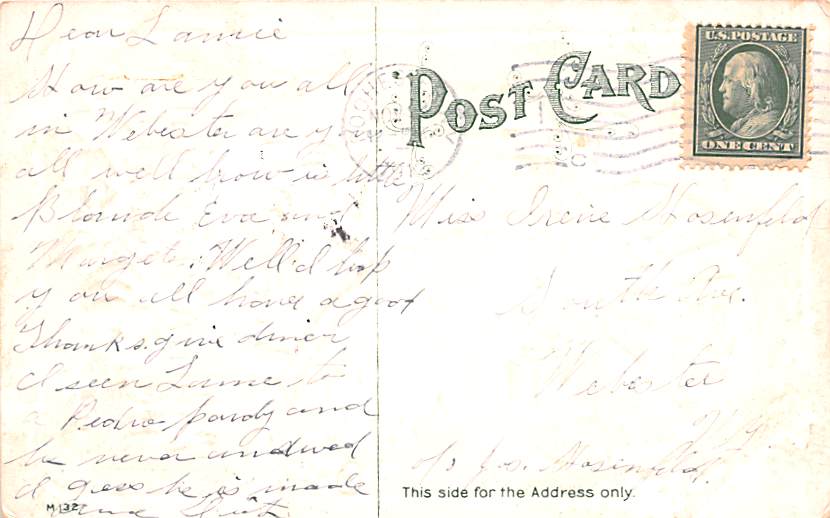 Dear
How are you all
in Webester are you
all well how is little
Blande Eva and
Marget. Well I hop
you all have a goot
Thanksgive diner
I seen to
a Pedro pardy and
he never
I gess he is made
M 132
POST CARD
U.S. POSTAGE
ONE CENT
Miss Irene Hosenfeld
South Ave.
Webester
N.Y.
c/o Jos. Hosenfeld.
This side for the Address only.